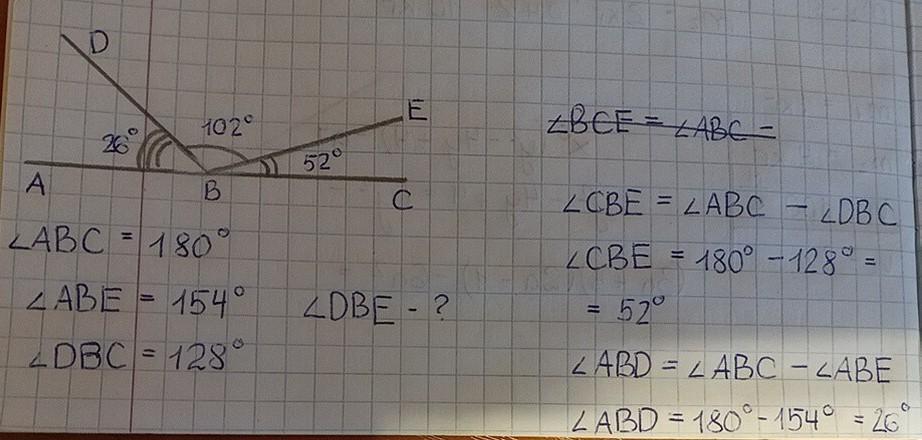 D
E
26°
102°
52°
A
B
C
∠ABC = 180°
∠ABE = 154°
∠DBE - ?
∠DBC = 128°
∠BCE = ∠ABC -
∠CBE = ∠ABC - ∠DBC
∠CBE = 180° - 128° =
= 52°
∠ABD = ∠ABC - ∠ABE
∠ABD = 180° - 154° = 26°